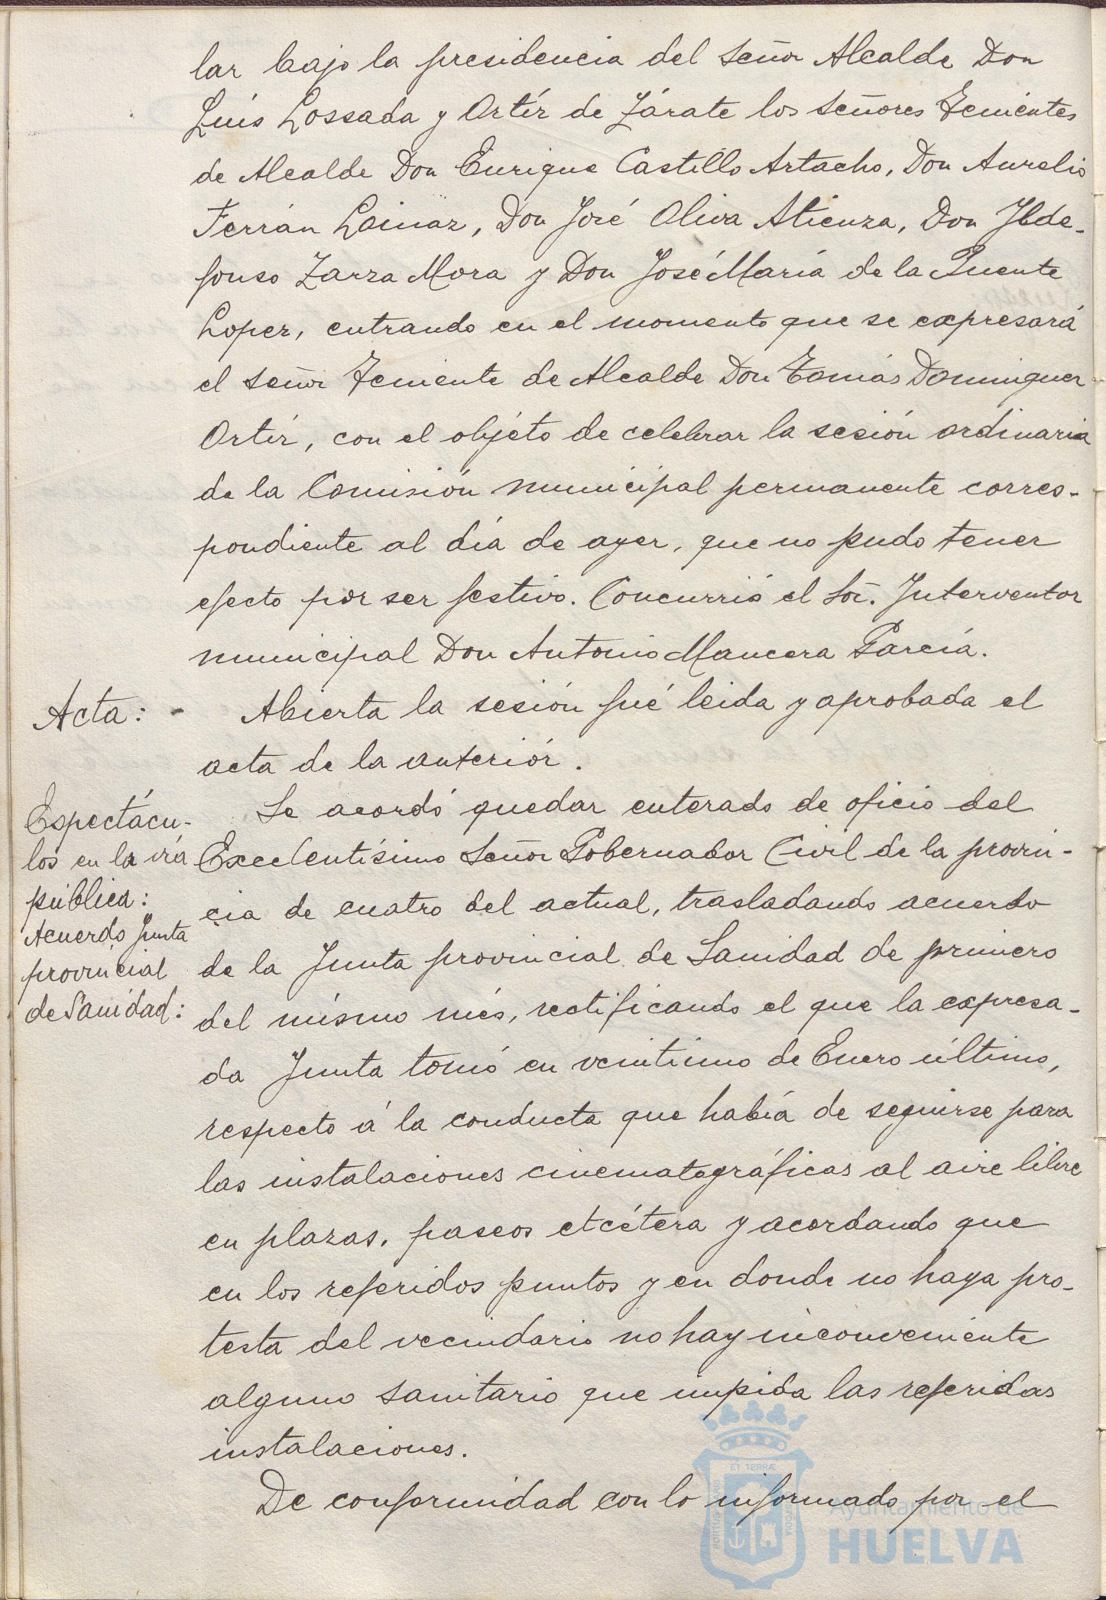 lar bajo la presidencia del señor Alcalde Don
Luís Lossada y Ortíz de Zárate los señores Tenientes
de Alcalde Don Enrique Castillo Artacho, Don Aurelio
Terrán Lainaz, Don José Oliva Atienza, Don Ilde-
fonso Zarza Mora y Don José María de la Puente
Lopez, entrando en el momento que se expresará
el señor Teniente de Alcalde Don Tomás Dominguez
Ortíz, con el objéto de celebrar la sesión ordinaria
de la Comisión municipal permanente corres-
pondiente al día de ayer, que no pudo tener
efecto por ser festivo. Concurrió el Sor. Interventor
municipal Don Antonio Mancera García.
Acta: - Abierta la sesión fué leida y aprobada el
acta de la anteriór.
Espectácu-
los en la vía
pública:
Acuerdo Junta
provincial
de Sanidad:
Se acordó quedar enterado de oficio del
Excelentísimo Señor Gobernador Civil de la provin-
cia de cuatro del actual, trasladando acuerdo
de la Junta provincial de Sanidad de primero
del mismo més, rectificando el que la expresa-
da Junta tomó en veintiuno de Enero último,
respecto á la conducta que había de seguirse para
las instalaciones cinematográficas al aire libre
en plazas, paseos etcétera y acordando que
en los referidos puntos y en donde no haya pro-
testa del vecindario no hay inconveniente
alguno sanitario que impida las referidas
instalaciones.
De conformidad con lo informado por el
Ayuntamiento de
HUELVA